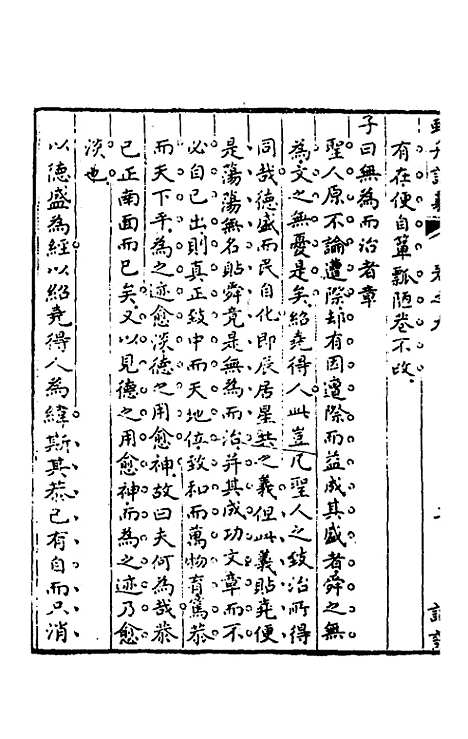 有在便自簞瓢陋巷不改
子曰無為而治者章
聖人原不論遭際却有因遭際而益成其盛者舜之無
為文之無憂是矣紹堯得人此豈凡聖人之致治所得
同哉德盛而民自化即辰居星共之義但此義貼堯便
是蕩蕩無名貼舜竟是無為而治并其成功文章而不
必自己出則真正致中而天地位致和而萬物育篤恭
而天下平為之迹愈淡德之用愈神故曰夫何為哉恭
己正南面而已矣又以見德之用愈神而為之迹乃愈
淡也
以德盛為經以紹堯得人為緯斯其恭己有自而只消